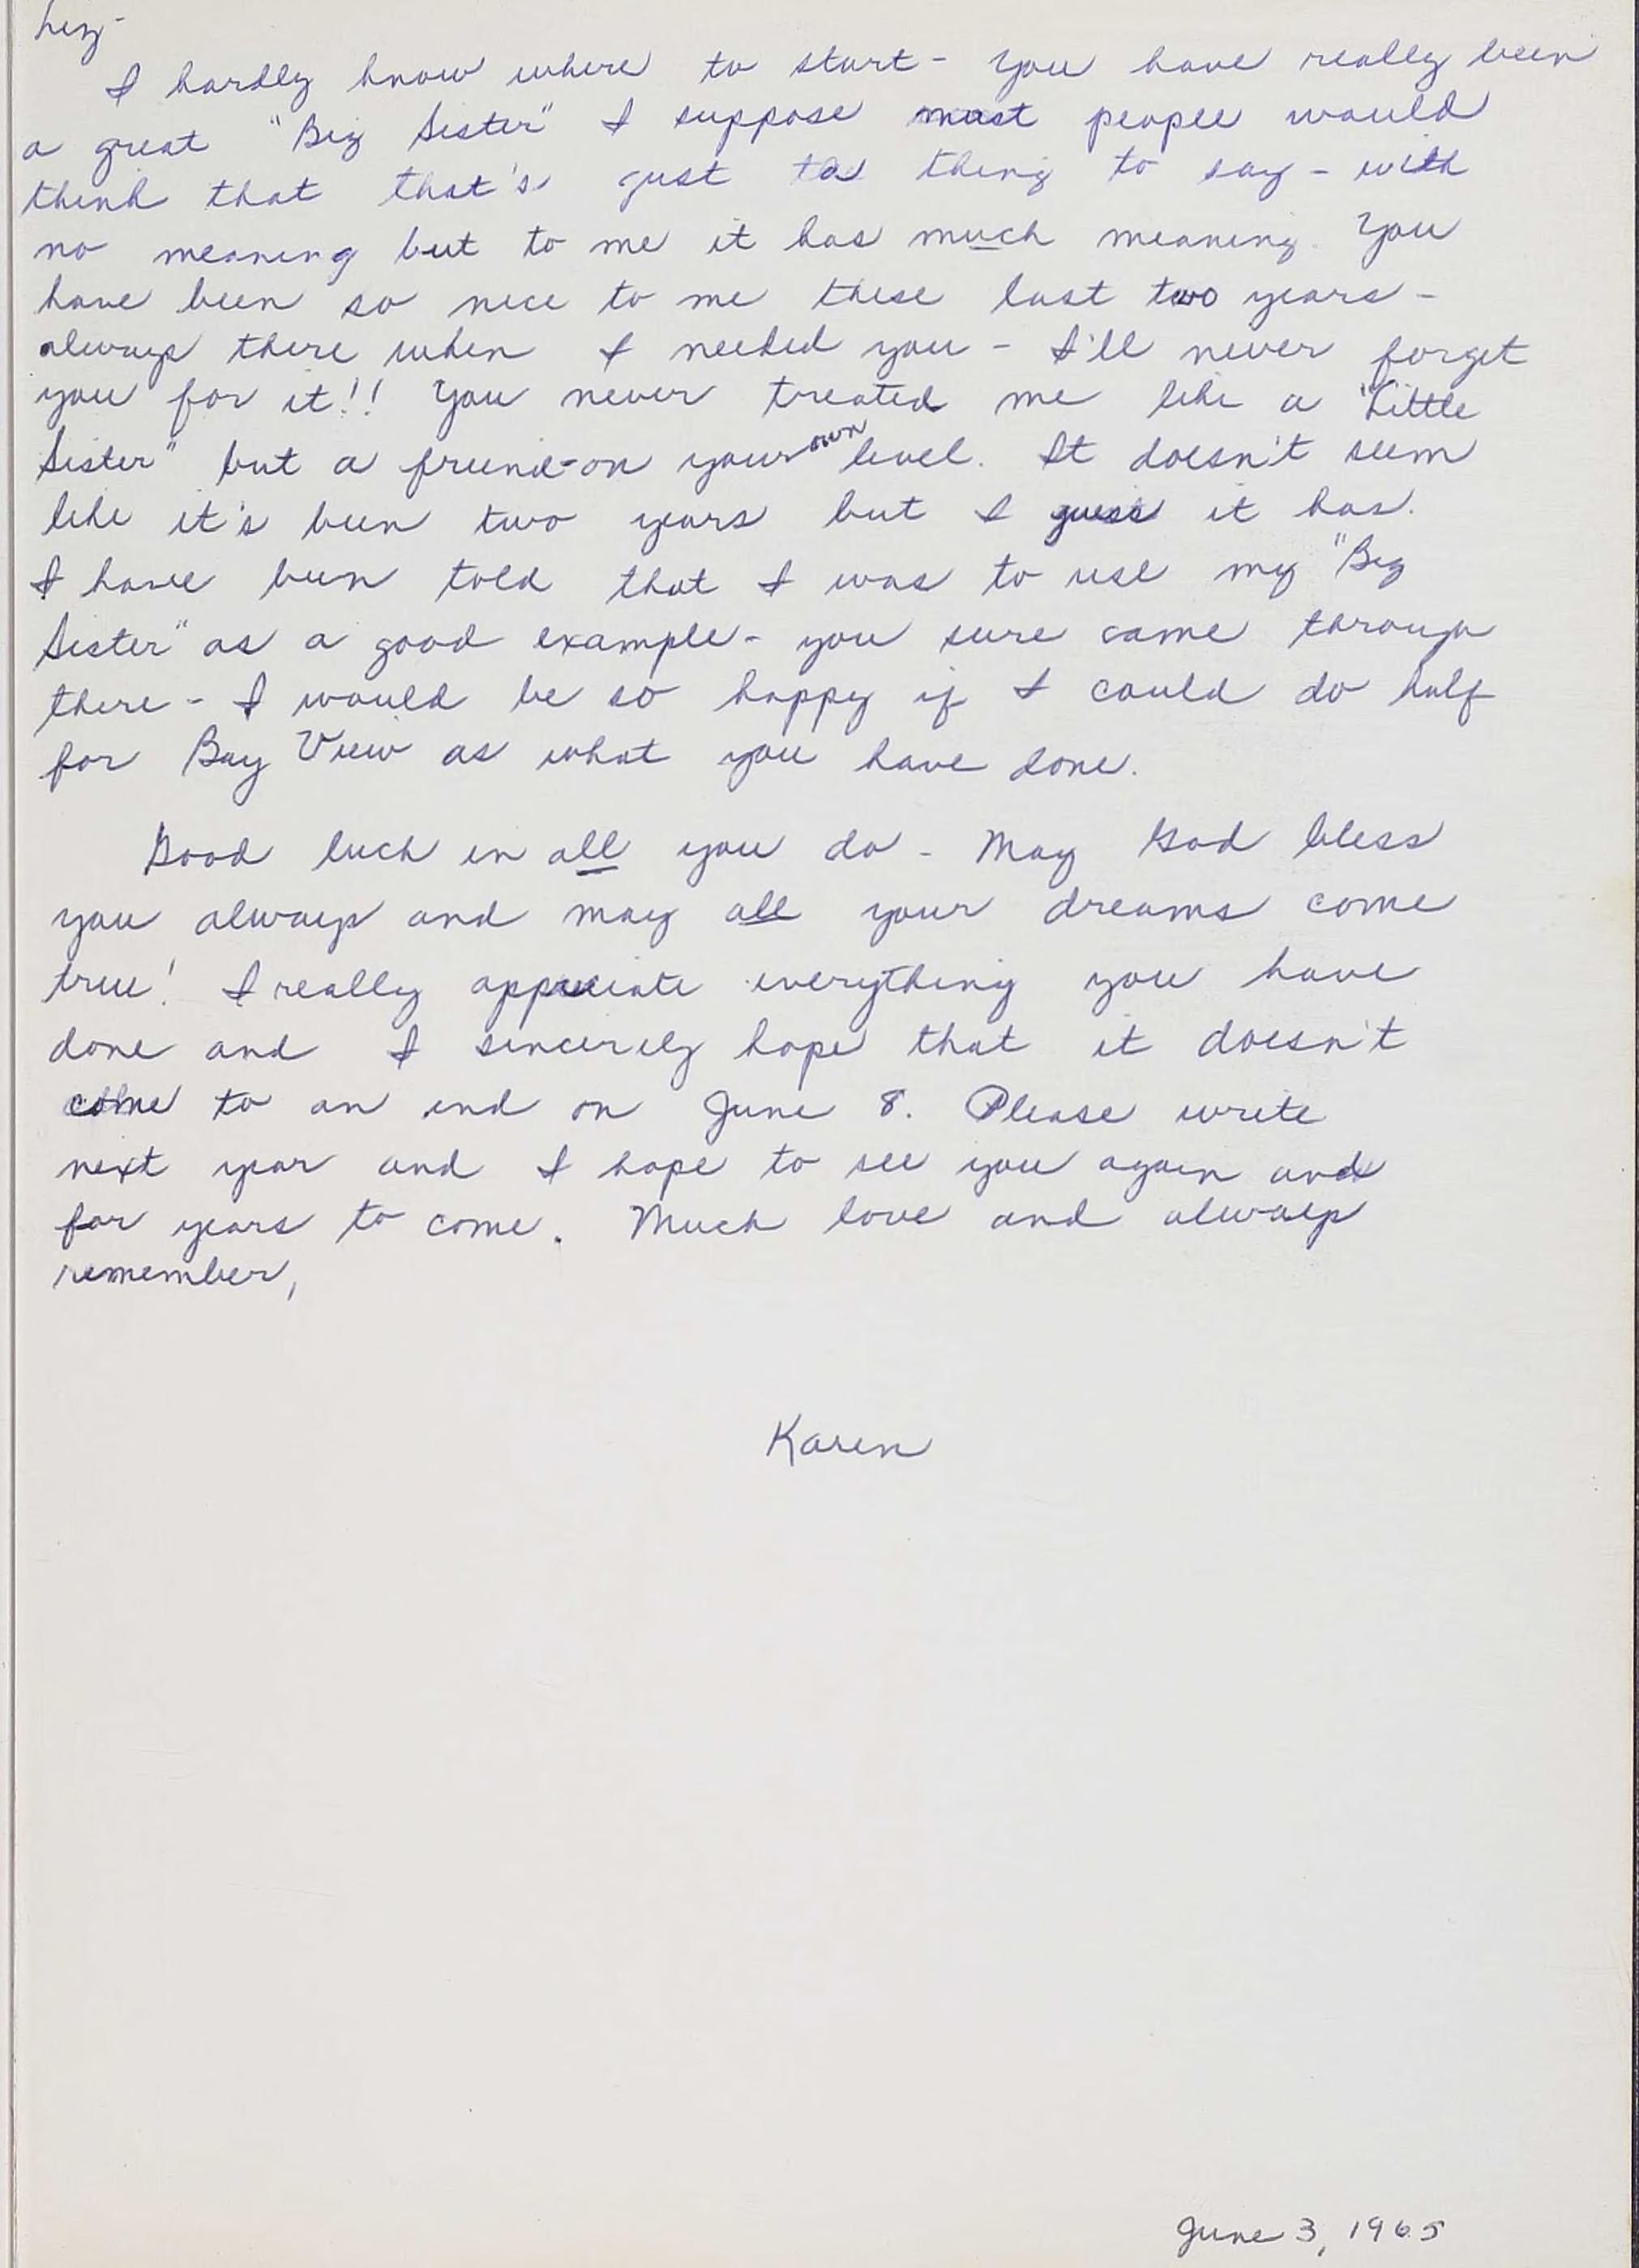 Liz-
I hardly know where to start - You have really been
a great "Big Sister" I suppose most people would
think that that's just a thing to say - with
no meaning but to me it has much meaning. You
have been so nice to me these last two years -
always there when I needed you - I'll never forget
you for it!! You never treated me like a "Little
Sister" but a friend - on your own level. It doesn't seem
like it's been two years but I guess it has.
I have been told that I was to use my "Big
Sister" as a good example - you sure came through
there - I would be so happy if I could do half
for Bay View as what you have done.
Good luck in all you do - May God bless
you always and may all your dreams come
true! I really appreciate everything you have
done and I sincerely hope that it doesn't
come to an end on June 8. Please write
next year and I hope to see you again and
for years to come. Much love and always
remember,
Karen
June 3, 1965